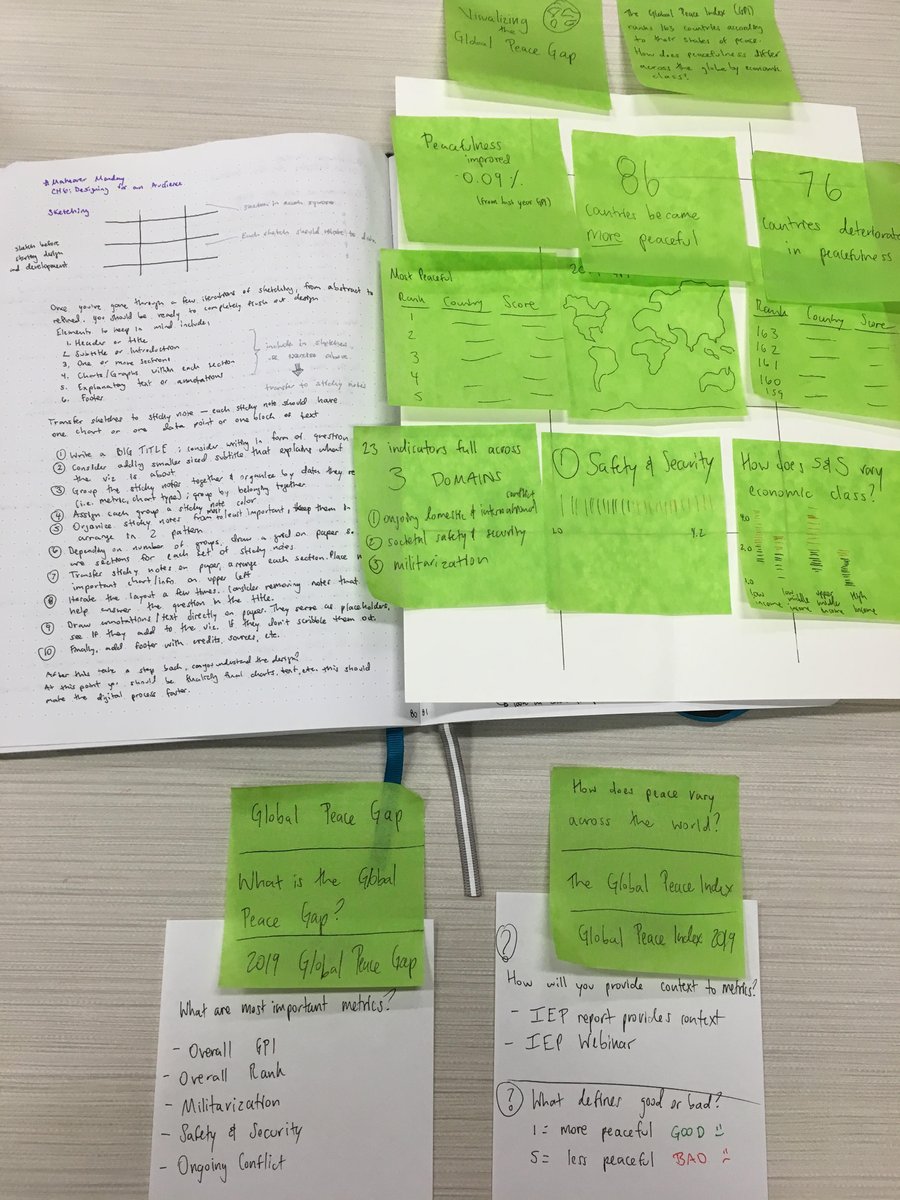 Visualizing
the
Global Peace Gap
The Global Peace Index (GPI)
ranks 163 countries according
to their states of peace.
How does peacefulness differ
across the globe by economic
class?
Peacefulness
improved
-0.09%
(from last year GPI)
86
countries became
more peaceful
76
countries deteriorate
in peacefulness
Most Peaceful
Rank Country Score
1
2
3
4
5
Rank Country Score
163
162
161
160
159
23 indicators full across
3 DOMAINS
conflict
① ongoing domestic & international
② societal safety & security
③ militarization
① Safety & Security
1.0 4.2
How does S&S vary
economic class?
4.0
2.0
1.0
low income
low middle income
upper middle income
High Income
Makeover Monday
CH6: Designing for an Audience
Sketching
sketch before
starting design
and development
sketch in each square
Each sketch should relate to data
Once you've gone through a few iterations of sketching, from abstract to
refined, you should be ready to completely flush out design
Elements to keep in mind include,
1. Header or title
2. Subtitle or introduction
3. One or more sections
4. Charts/Graphs within each section
5. Explanatory text or annotations
6. Footer
include in sketches,
exercise above
transfer to sticky notes
Transfer sketches to sticky note — each sticky note should have
one chart or one data point or one block of text
① Write a BIG TITLE; consider writing in form of question
② Consider adding smaller sized subtitle that explains what
the viz is about
③ Group the sticky notes together & organize by data they re
(i.e. metric, chart type); group by belonging together
④ Assign each group a sticky note color
⑤ Organize sticky notes from most to least important, keep them in
arrange in Z pattern
⑥ Depending on number of groups, draw a grid on paper s
are sections for each set of sticky notes
⑦ Transfer sticky notes on paper, arrange each section. Place
important chart/info on upper left
⑧ Iterate the layout a few times. Consider removing notes that
help answer the question in the title.
⑨ Draw annotations/text directly on paper. They serve as placeholders,
see if they add to the viz. If they don't scribble them out.
⑩ Finally, add footer with credits, sources, etc.
After this take a step back, can you understand the design?
At this point you should be finalizing final charts, text, etc. this should
make the digital process faster.
80 81
Global Peace Gap
What is the Global
Peace Gap?
2019 Global Peace Gap
What are most important metrics?
- Overall GPI
- Overall Rank
- Militarization
- Safety & Security
- Ongoing Conflict
How does peace vary
across the world?
The Global Peace Index
Global Peace Index 2019
?
How will you provide context to metrics?
- IEP report provides context
- IEP Webinar
? What defines good or bad?
1 = more peaceful GOOD
5 = less peaceful BAD